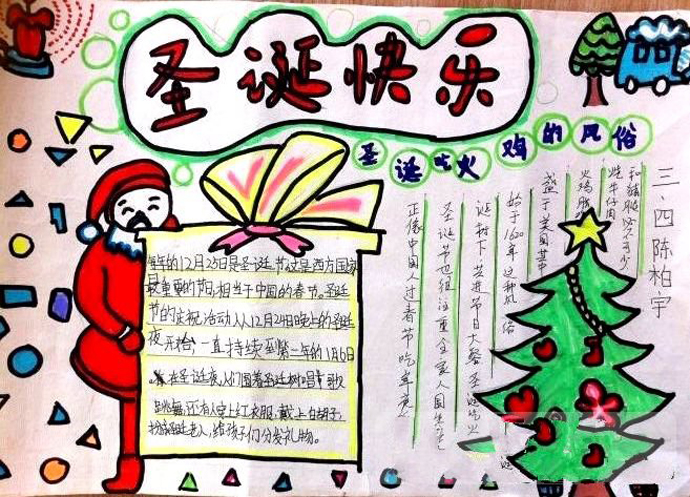 圣诞快乐
圣诞吃火鸡的风俗
三.四陈柏宇
每年的12月25日是圣诞节,这是西方国家
最重要的节日,相当于中国的春节。圣诞
节的庆祝活动从12月24日晚上的圣诞
夜开始,一直持续至第二年的1月6日
。在圣诞夜,人们围着圣诞树唱歌
跳舞,还有人穿上红衣服,戴上白胡子,
扮演圣诞老人,给孩子们分发礼物。
正像中国人过春节吃年
圣诞节也很注重全家人围坐
诞树下,共进节日大餐圣诞吃火
始于1620年这种风俗
盛于美国其中
火鸡
烧牛仔肉
和猪腿必不可少